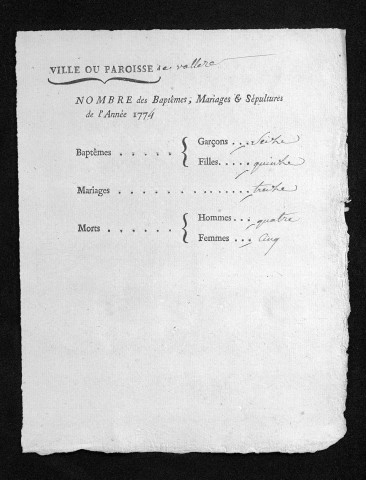 VILLE OU PAROISSE de vallere
NOMBRE des Baptêmes, Mariages & Sépultures
de l'Année 1774
Baptêmes . . . . . { Garçons . . . Seihe
Filles. . . . . quinhe
Mariages . . . . . . . . . . . . . treihe
Morts . . . . . . { Hommes . . . quatre
Femmes . . . Cinq